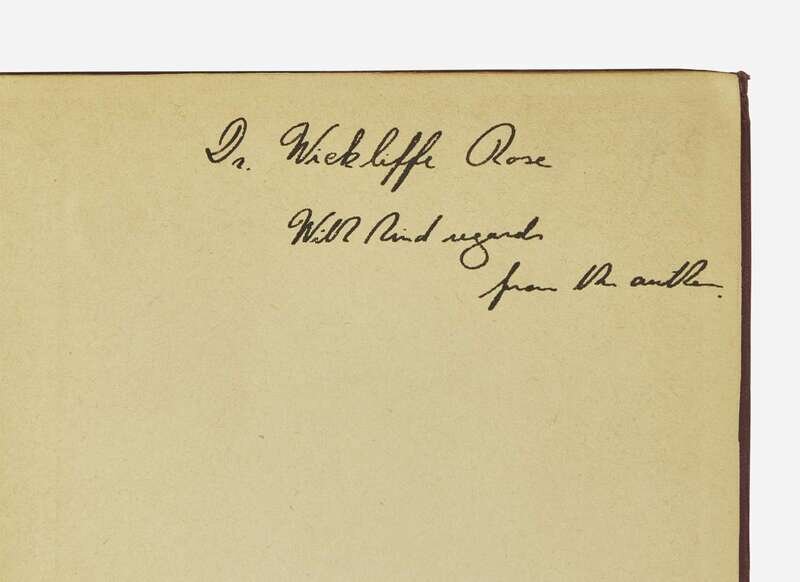 Dr. Wickliffe Rose
With kind regards
from the author.